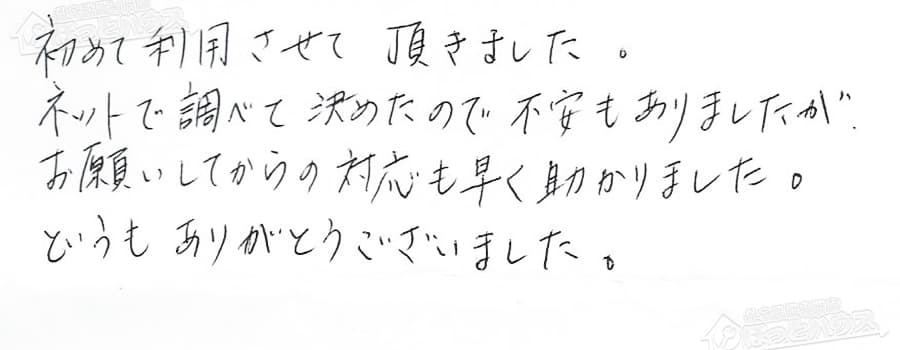 初めて利用させて頂きました。
ネットで調べて決めたので不安もありましたが、
お願いしてからの対応も早く助かりました。
どうもありがとうございました。